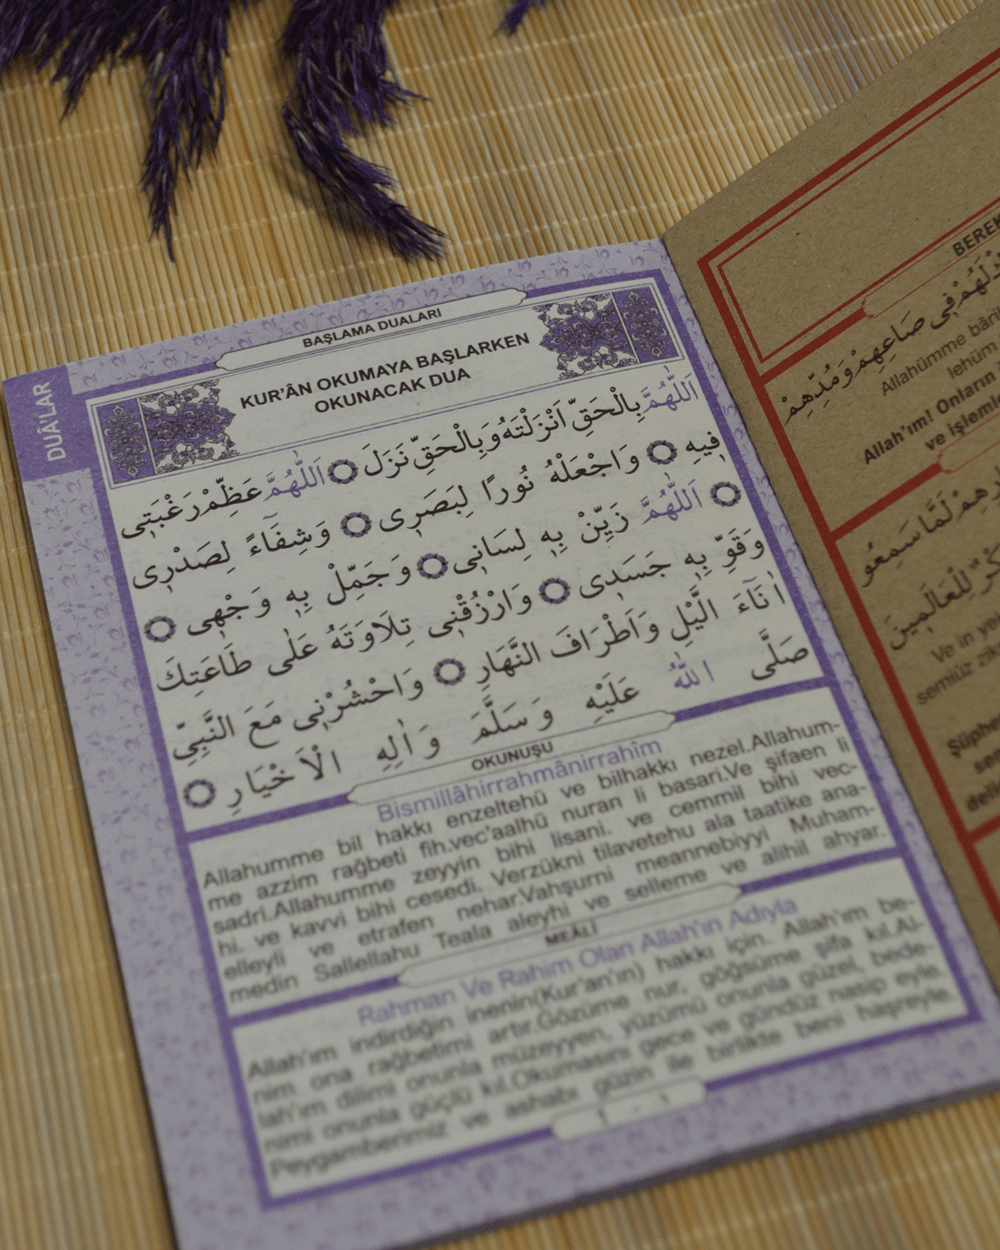 DUÂ'LAR
BAŞLAMA DUALARI
KUR'ÂN OKUMAYA BAŞLARKEN
OKUNACAK DUA
اَللّٰهُمَّ بِالْحَقِّ اَنْزَلْتَهُ وَبِالْحَقِّ نَزَلَ ۝ اَللّٰهُمَّ عَظِّمْ رَغْبَتٖى
فٖيهِ ۝ وَاجْعَلْهُ نُورًا لِبَصَرٖى ۝ وَشِفَٓاءً لِصَدْرٖى
۝ اَللّٰهُمَّ زَيِّنْ بِهٖ لِسَانٖى ۝ وَجَمِّلْ بِهٖ وَجْهٖى ۝
وَقَوِّ بِهٖ جَسَدٖى ۝ وَارْزُقْنٖى تِلَاوَتَهُ عَلٰى طَاعَتِكَ
اٰنَٓاءَ الَّيْلِ وَاَطْرَافَ النَّهَارِ ۝ وَاحْشُرْنٖى مَعَ النَّبِىِّ
صَلَّى اللّٰهُ عَلَيْهِ وَسَلَّمَ وَاٰلِهِ الْاَخْيَارِ ۝
OKUNUŞU
Bismillâhirrahmânirrahîm
Allahumme bil hakkı enzeltehü ve bilhakkı nezel.Allahum-
me azzim rağbeti fih.vec'aalhü nuran li basari.Ve şifaen li
sadri.Allahumme zeyyin bihi lisani. ve cemmil bihi vec-
hi. ve kavvi bihi cesedi. Verzükni tilavetehu ala taatike ana-
elleyli ve etrafen nehar.Vahşurni meannebiyyi Muham-
medin Sallellahu Teala aleyhi ve selleme ve alihil ahyar.
MEÂLİ
Rahman Ve Rahim Olan Allah'ın Adıyla
Allah'ım indirdiğin inenin(Kur'an'ın) hakkı için. Allah'ım be-
nim ona rağbetimi artır.Gözüme nur, göğsüme şifa kıl.Al-
lah'ım dilimi onunla müzeyyen, yüzümü onunla güzel, bede-
nimi onunla güçlü kıl.Okumasını gece ve gündüz nasip eyle.
Peygamberimiz ve ashabı güzin ile birlikte beni haşreyle.
BEREK
لَهُمْ فٖى صَاعِهِمْ وَمُدِّهِمْ
Allahümme bâri
lehüm
Allah'ım! Onların
ve işlemle
لَمَّا سَمِعُو
لِلْعَالَمٖينَ
Ve in ye
semiüz zik
Şüphe